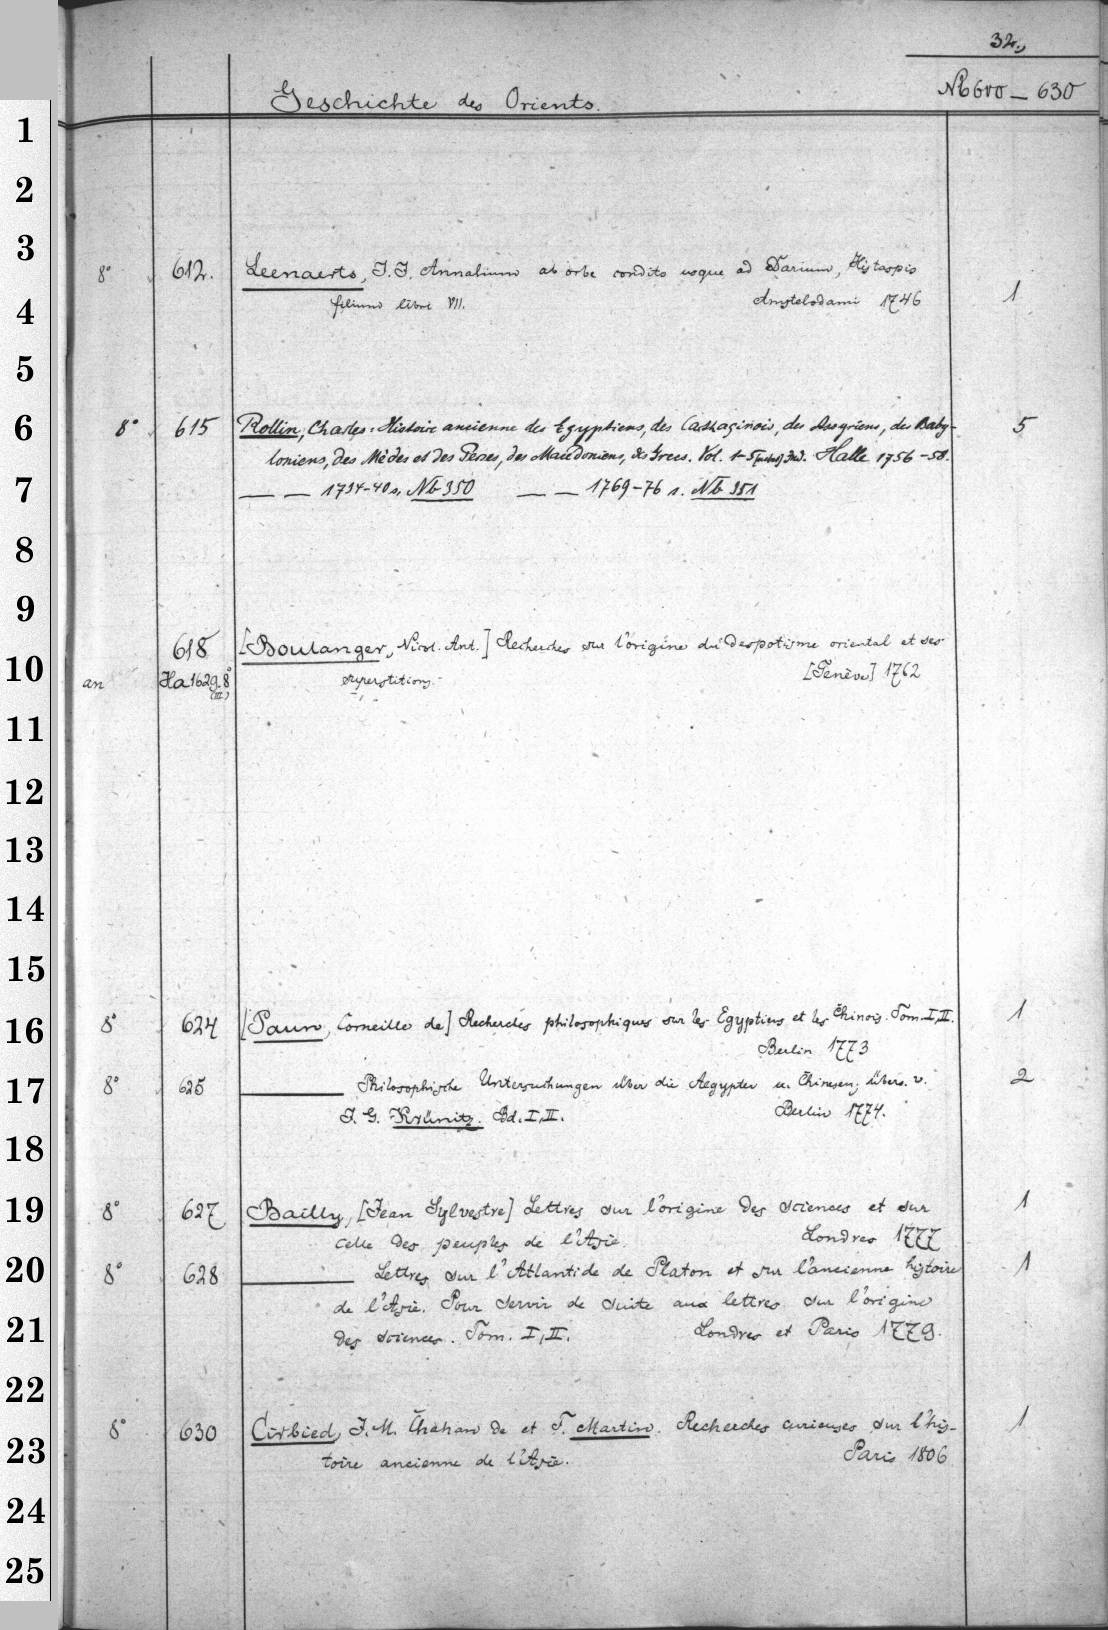 32.
Geschichte des Orients.
Nb 600 — 630
8° 612. Leenaerts, J. J. Annalium ab orbe condito usque ad Darium, Hystaspis
filium libri VII. Amstelodami 1746 1
8° 615 Rollin, Charles: Histoire ancienne des Egyptiens, des Carthaginois, des Assyriens, des Baby-
loniens, des Mèdes et des Perses, des Macédoniens, des Grecs. Vol. 1-5 Halle 1756-58. 5
— — 1734-40 s. Nb 350 — — 1769-76 s. Nb 351
618 [Boulanger, Nicol. Ant.] Recherches sur l'origine du despotisme oriental et des
an Ha 1629 8° (III) superstitions. [Genève] 1762
8° 624 [Pauw, Corneille de] Recherches philosophiques sur les Egyptiens et les Chinois. Tom. I, II. 1
Berlin 1773
8° 625 ——— Philosophische Untersuchungen über die Aegypter u. Chinesen; übers. v. 2
J. G. Krünitz. Bd. I, II. Berlin 1774.
8° 627 Bailly, [Jean Sylvestre] Lettres sur l'origine des sciences et sur 1
celle des peuples de l'Asie. Londres 1777
8° 628 ——— Lettres sur l'Atlantide de Platon et sur l'ancienne histoire 1
de l'Asie. Pour servir de suite aux lettres sur l'origine
des sciences. Tom. I, II. Londres et Paris 1779.
8° 630 Cirbied, J. M. Chahan de et F. Martin. Recherches curieuses sur l'his- 1
toire ancienne de l'Asie. Paris 1806
1
2
3
4
5
6
7
8
9
10
11
12
13
14
15
16
17
18
19
20
21
22
23
24
25